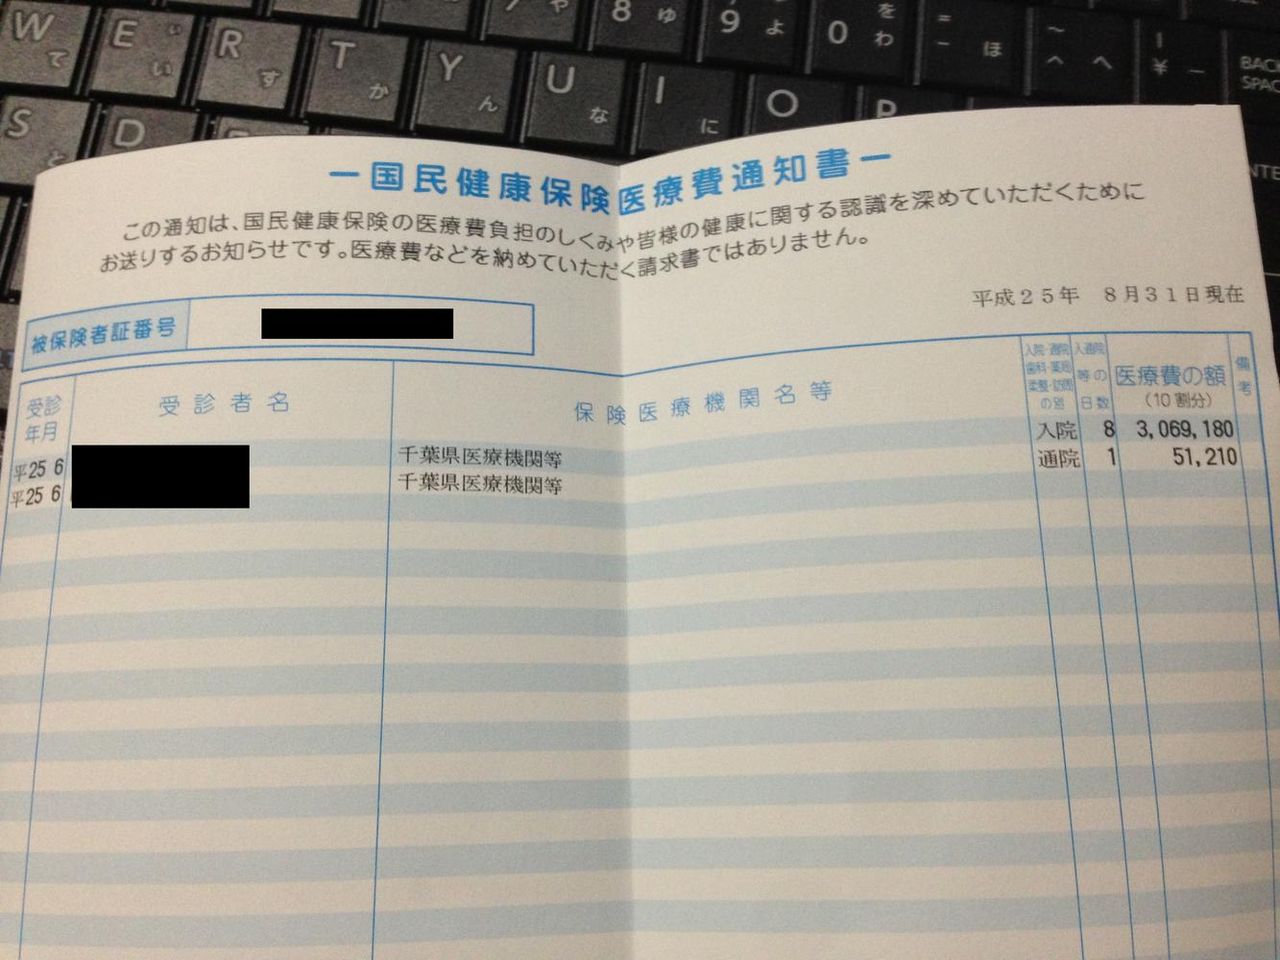 W て
E い ぃ
R す
T か
Y ん
U な
I に
O
P
8 ゅ
9 ょ
0 を わ
= - ほ
~ ^ へ
| ¥ ー
BACK SPACE
S と
D
－国民健康保険医療費通知書－
この通知は、国民健康保険の医療費負担のしくみや皆様の健康に関する認識を深めていただくために
お送りするお知らせです。医療費などを納めていただく請求書ではありません。
平成25年 8月31日現在
被保険者証番号
受診年月 受診者名 保険医療機関名等 入院・通院 歯科・薬局 柔整・訪問 の別 入通院等の日数 医療費の額 (10割分) 備考
平25 6 千葉県医療機関等 入院 8 3,069,180
平25 6 千葉県医療機関等 通院 1 51,210